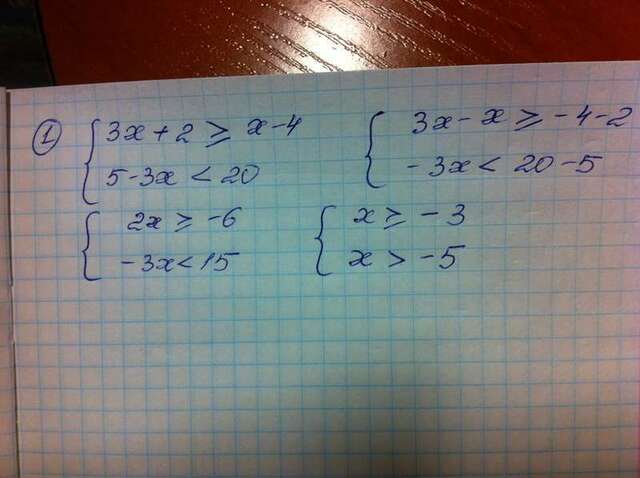 1) { 3x + 2 ≥ x - 4
5 - 3x < 20
{ 3x - x ≥ -4 - 2
- 3x < 20 - 5
{ 2x ≥ -6
- 3x < 15
{ x ≥ - 3
x > -5